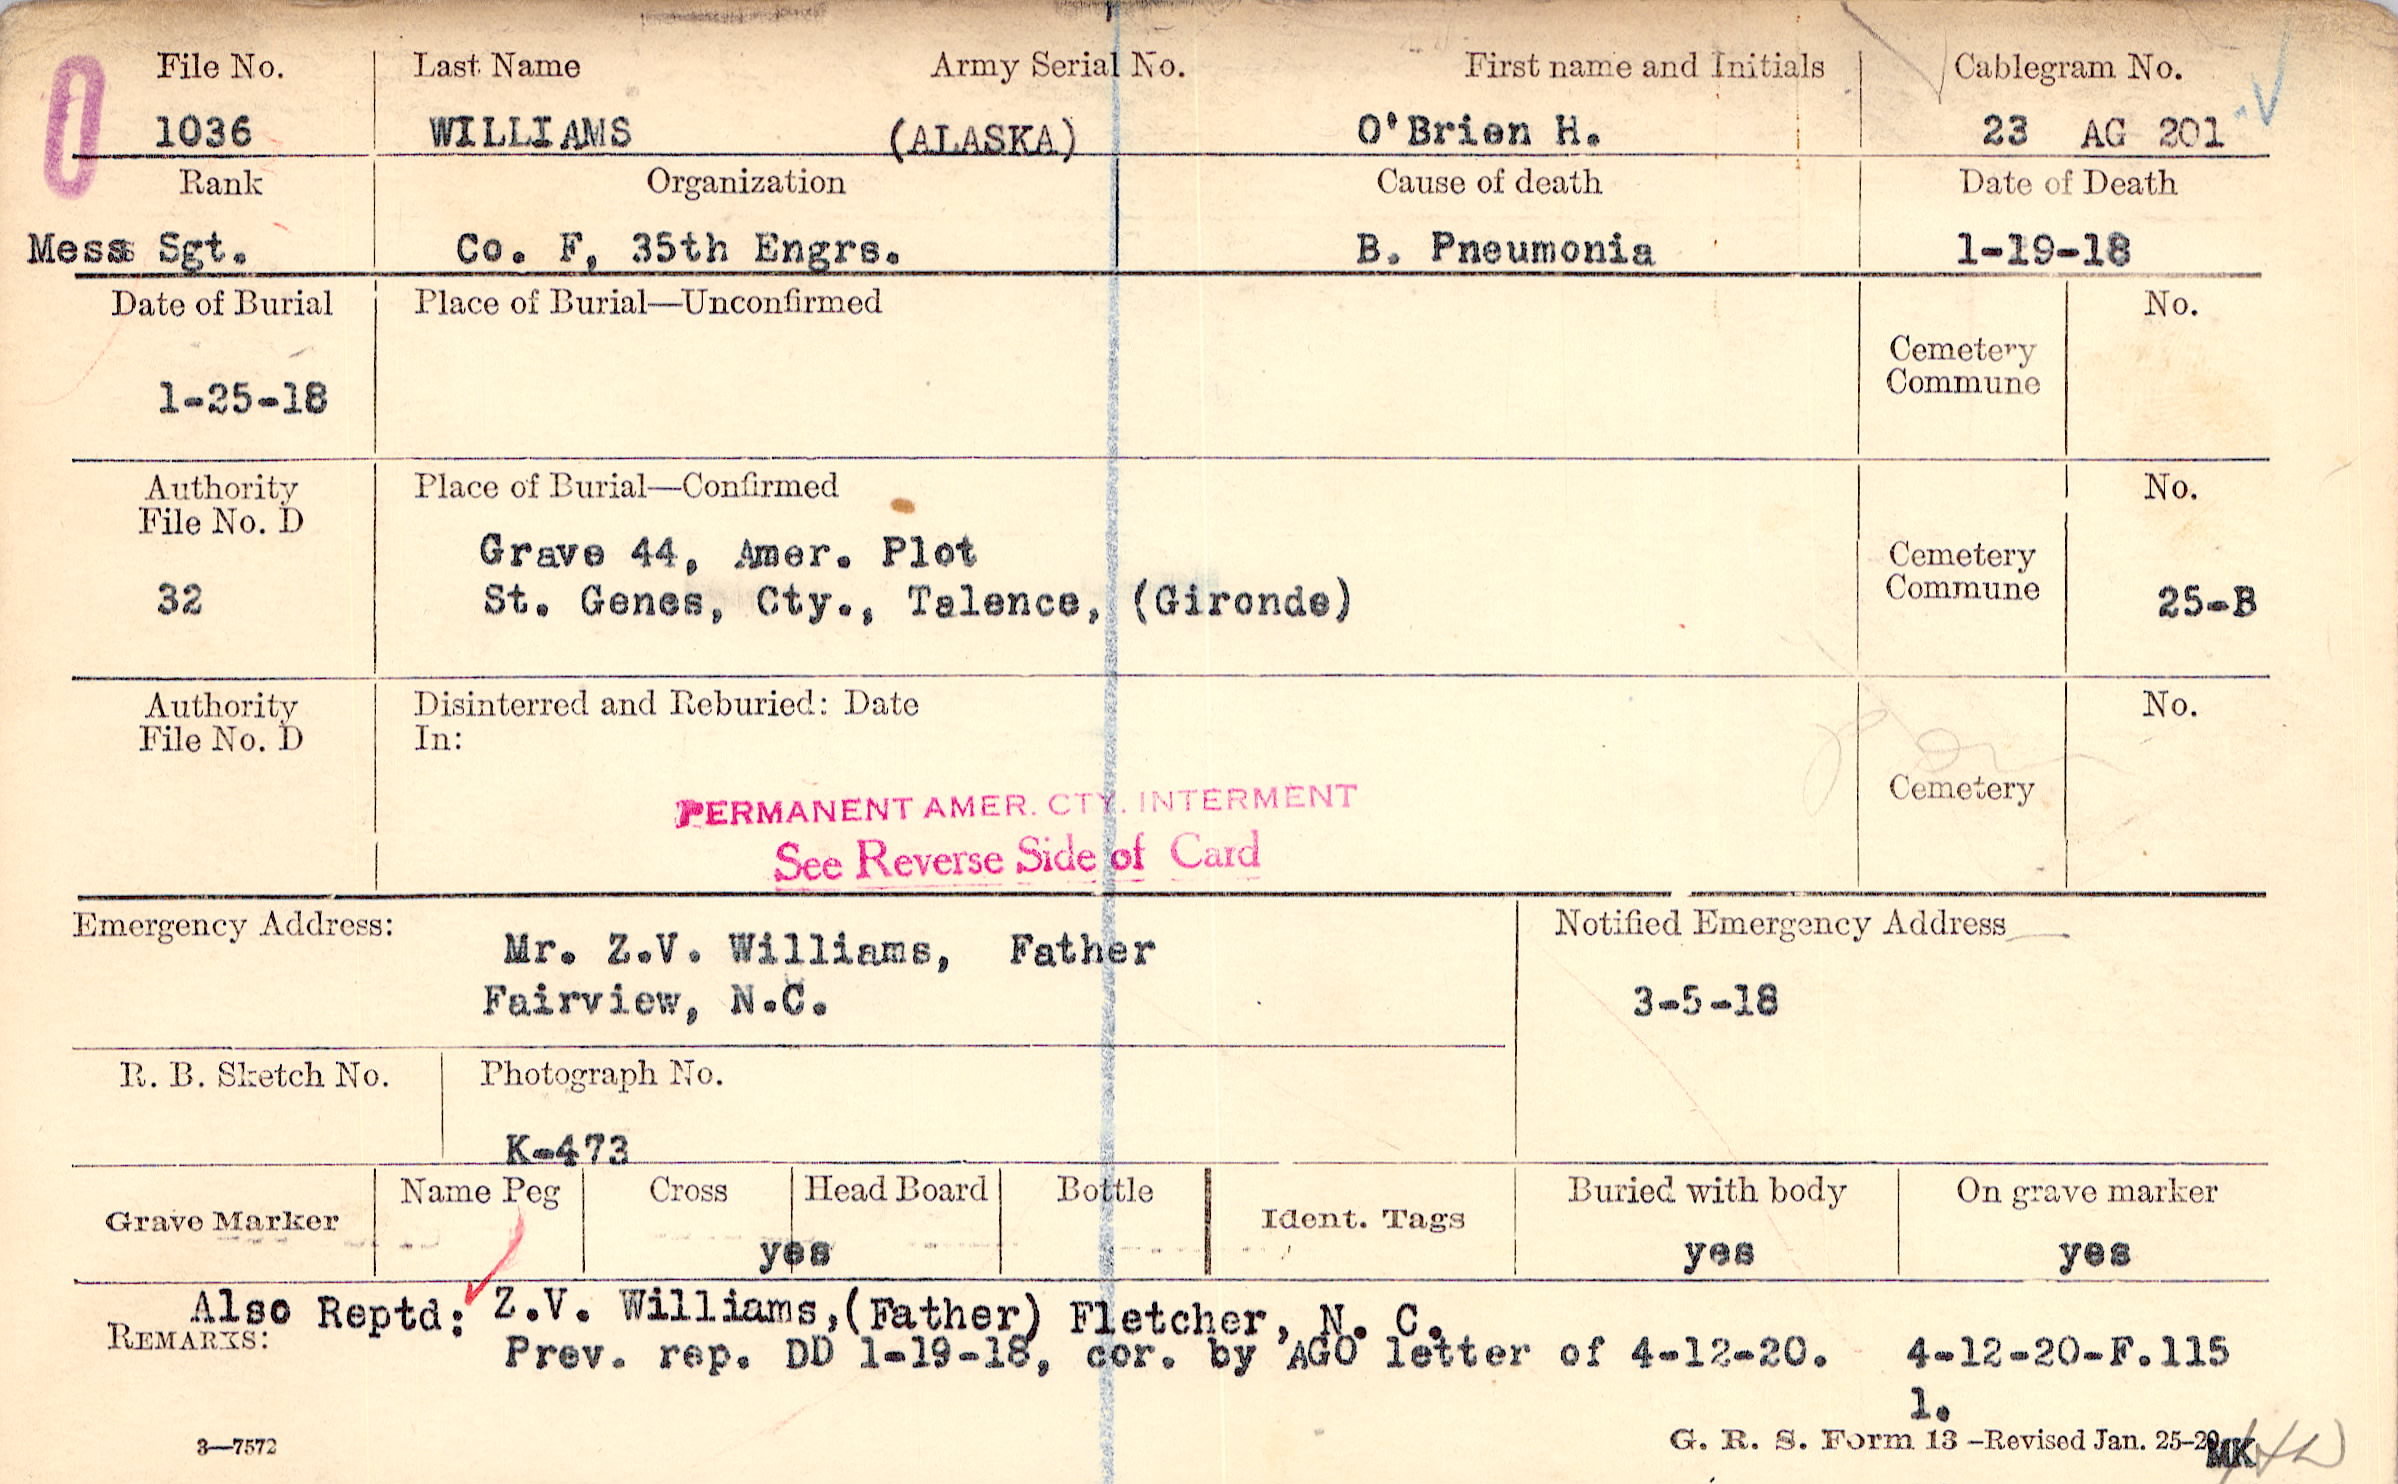 File No. Last Name Army Serial No. First name and Initials Cablegram No.
1036 WILLIAMS (ALASKA) O'Brien H. 23 AG 201
Rank Organization Cause of death Date of Death
Mess Sgt. Co. F, 35th Engrs. B. Pneumonia 1-19-18
Date of Burial Place of Burial—Unconfirmed No.
Cemetery
Commune
1-25-18
Authority Place of Burial—Confirmed No.
File No. D
Grave 44, Amer. Plot Cemetery
32 St. Genes, Cty., Talence, (Gironde) Commune 25-B
Authority Disinterred and Reburied: Date No.
File No. D In:
Cemetery
PERMANENT AMER. CTY. INTERMENT
See Reverse Side of Card
Emergency Address: Notified Emergency Address
Mr. Z.V. Williams, Father
Fairview, N.C. 3-5-18
R. B. Sketch No. Photograph No.
K-473
Grave Marker Name Peg Cross Head Board Bottle Ident. Tags Buried with body On grave marker
yes yes yes
Also Reptd: Z.V. Williams,(Father) Fletcher, N. C.
REMARKS: Prev. rep. DD 1-19-18, cor. by AGO letter of 4-12-20. 4-12-20-F.115
1.
3—7572 G. R. S. Form 13 –Revised Jan. 25-20 MK